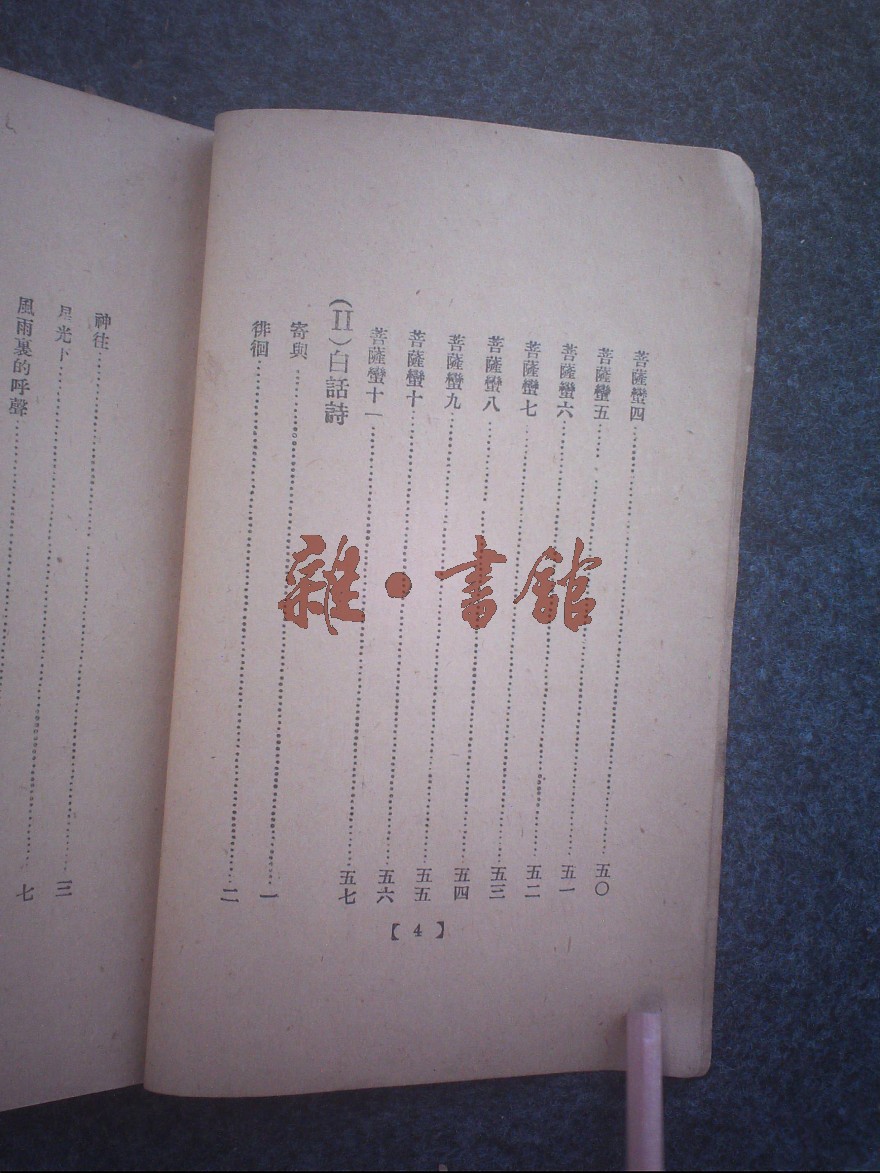 菩薩蠻四……五〇
菩薩蠻五……五一
菩薩蠻六……五二
菩薩蠻七……五三
菩薩蠻八……五四
菩薩蠻九……五五
菩薩蠻十……五六
菩薩蠻十一……五七
(II)白話詩
寄與……一
徘徊……二
【4】
神往……三
星光下……七
風雨裏的呼聲……
雜·書館